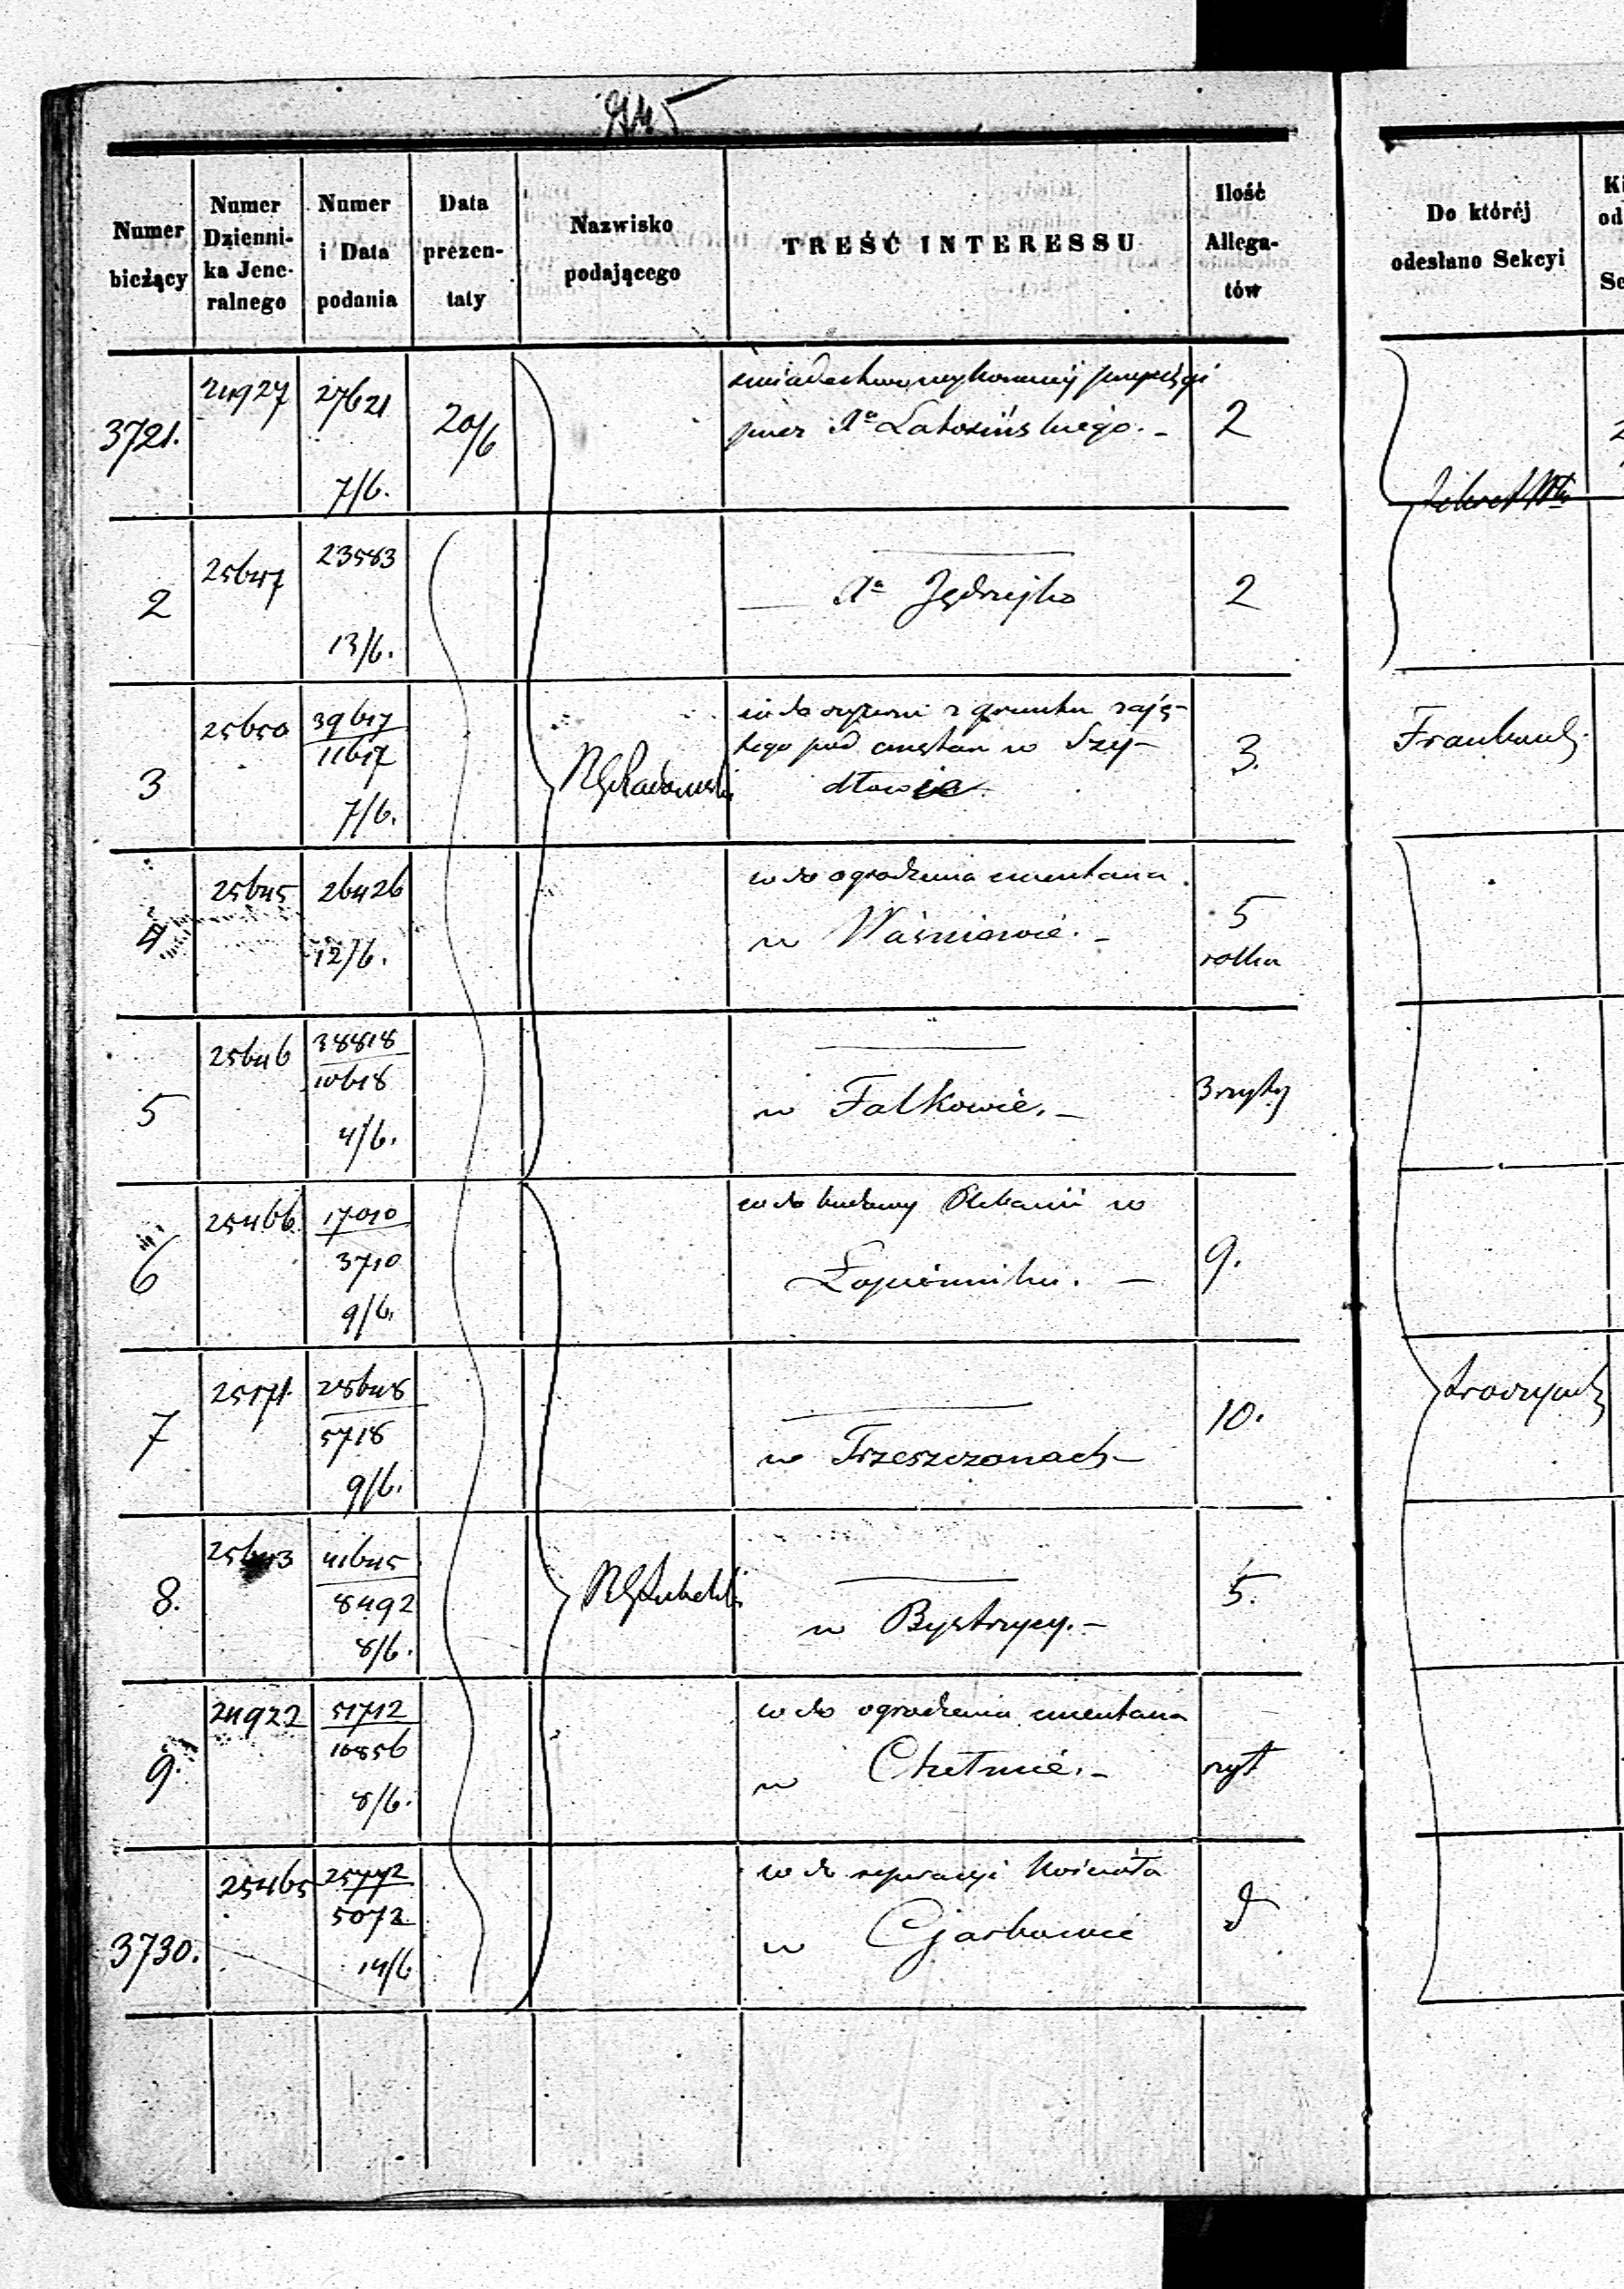 945
Numer bieżący
Numer Dzienni-ka Jene-ralnego
Numer i Data podania
Data prezen-taty
Nazwisko podającego
TREŚĆ INTERESSU
Ilość Allega-tów
Do któréj odesłano Sekcyi
3721. 24927 27621 7/6. 20/6 świadectwo wykonanej przysięgi
przez Xa Latosińskiego. - 2
2 25647 23583 13/6. — Xa Jędrzejko 2
3 25650 39617 11617 7/6. RGRadomski wzdo czynszu z gruntu zaję-
tego pod cmętarz w Szy-
dłowie 3. Frankowski
4 25645 26426 12/6. wzdo ogrodzenia cmentarza
w Waśniowie. - 5
rolka
5 25646 38818 10618 4/6. ——
w Falkowie. - 3 ryty
6 25466 17010 3710 9/6. wzdo budowy Plebanii w
Łopienniku. — 9.
7 25171. 28648 5718 9/6. ——
w Trzeszczanach — 10.
8. 25643 41645 8492 8/6. RGLubelski ——
w Bystrzycy. - 5.
9. 24922 51712 10856 8/6. wzdo ogrodzenia cmentarza
w Chełmie. - ryt
3730. 25465 25772 5072 14/6 wzdo reparacyi Kościoła
w Garbowie 9